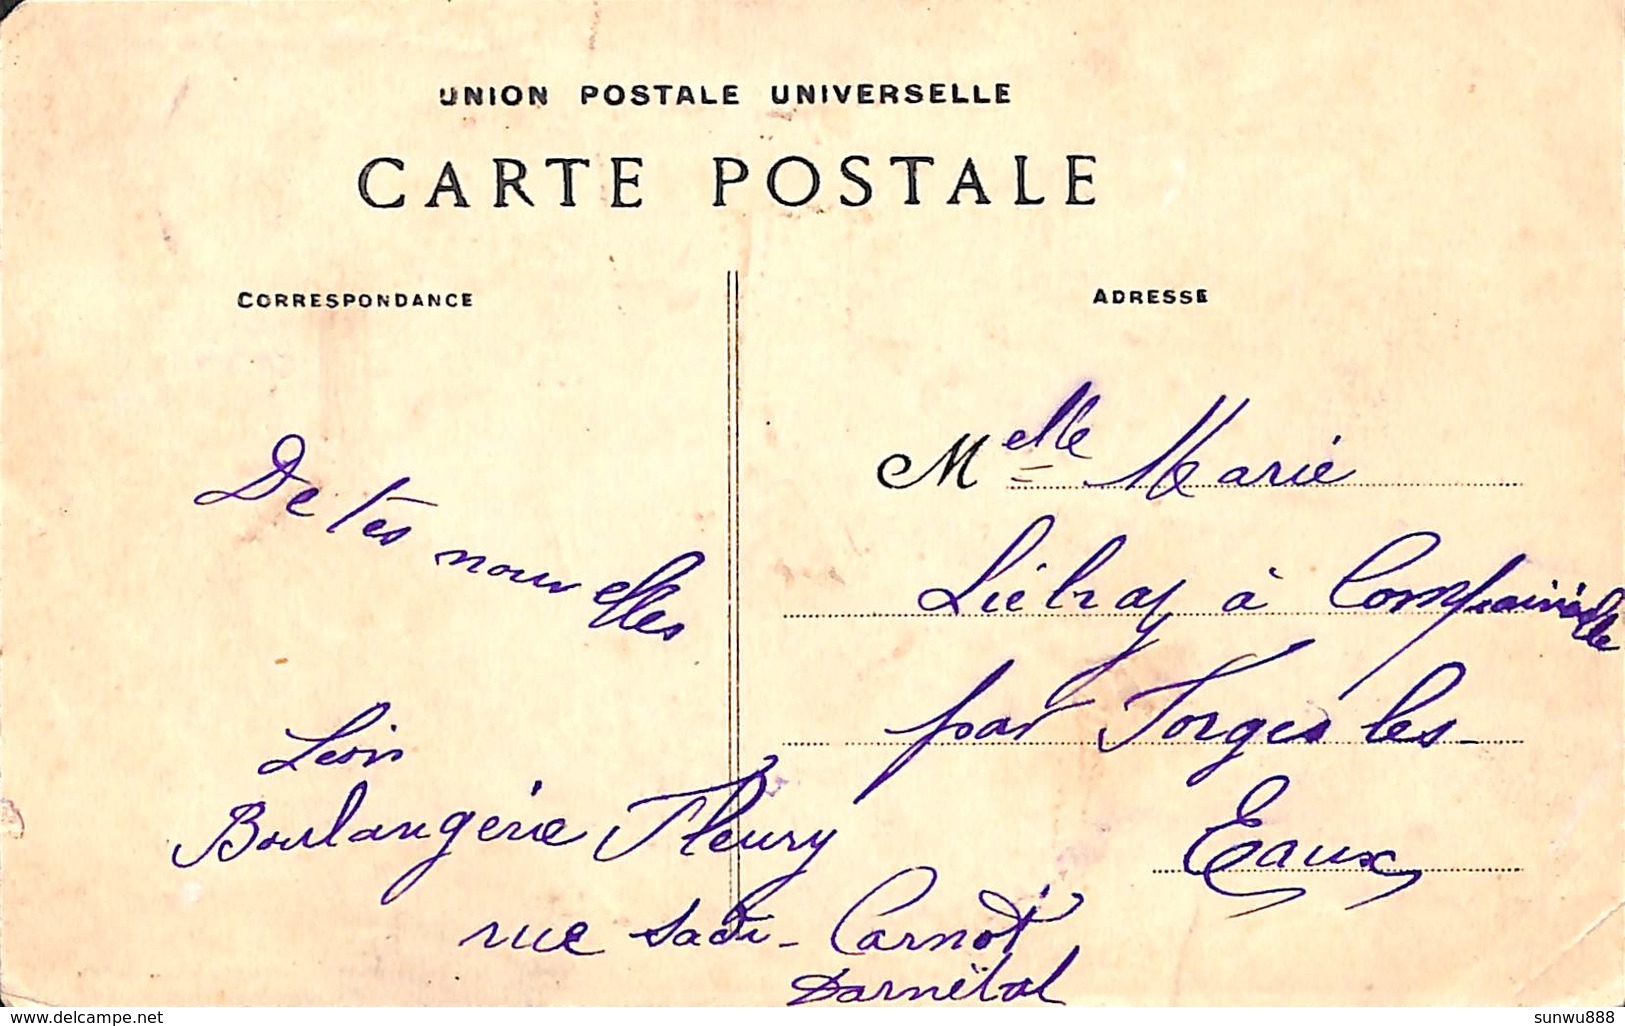 UNION POSTALE UNIVERSELLE
CARTE POSTALE
CORRESPONDANCE
De tes nouvelles
Léon
Boulangerie Fleury
rue Sadi-Carnot
Darnétal
ADRESSE
Melle Marie
Liétray à Compainville
par Forges les-
Eaux
www.delcampe.net
sunwu888